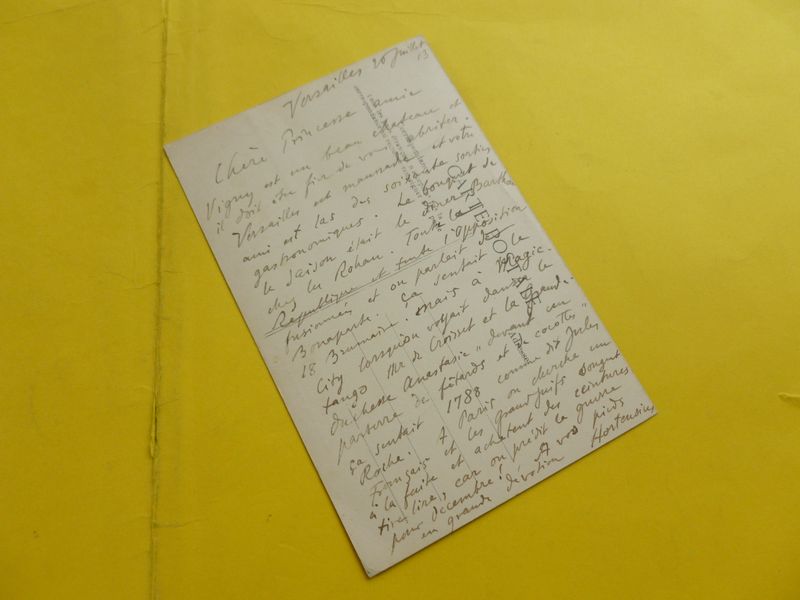 Versailles 20 juillet
13
Chère Princesse amie
Vigny est un beau chateau et
il doit être fier de vous abriter.
Versailles est maussade et votre
ami est las des soixante sorties
gastronomiques. Le bouquet de
la saison était le diner Barthou
chez les Rohan. Toute la
République et toute l'Opposition
fusionnées et on parlait des
Bonaparte. Ça sentait le
18 Brumaire. Mais à Magic-
City lorsqu'on voyait danser le
tango Mr de Croisset et la Grande-
duchesse Anastasie, devant un
parterre de fêtards et de cocottes,
ça sentait 1788 comme dit Jules
Roche. A Paris on cherche un
Français et les grands juifs songent
à la fuite et achètent des ceintures
tirelire, car on prédit la guerre
pour décembre! A vos pieds
en grande dévotion Hortensius
CARTE POSTALE